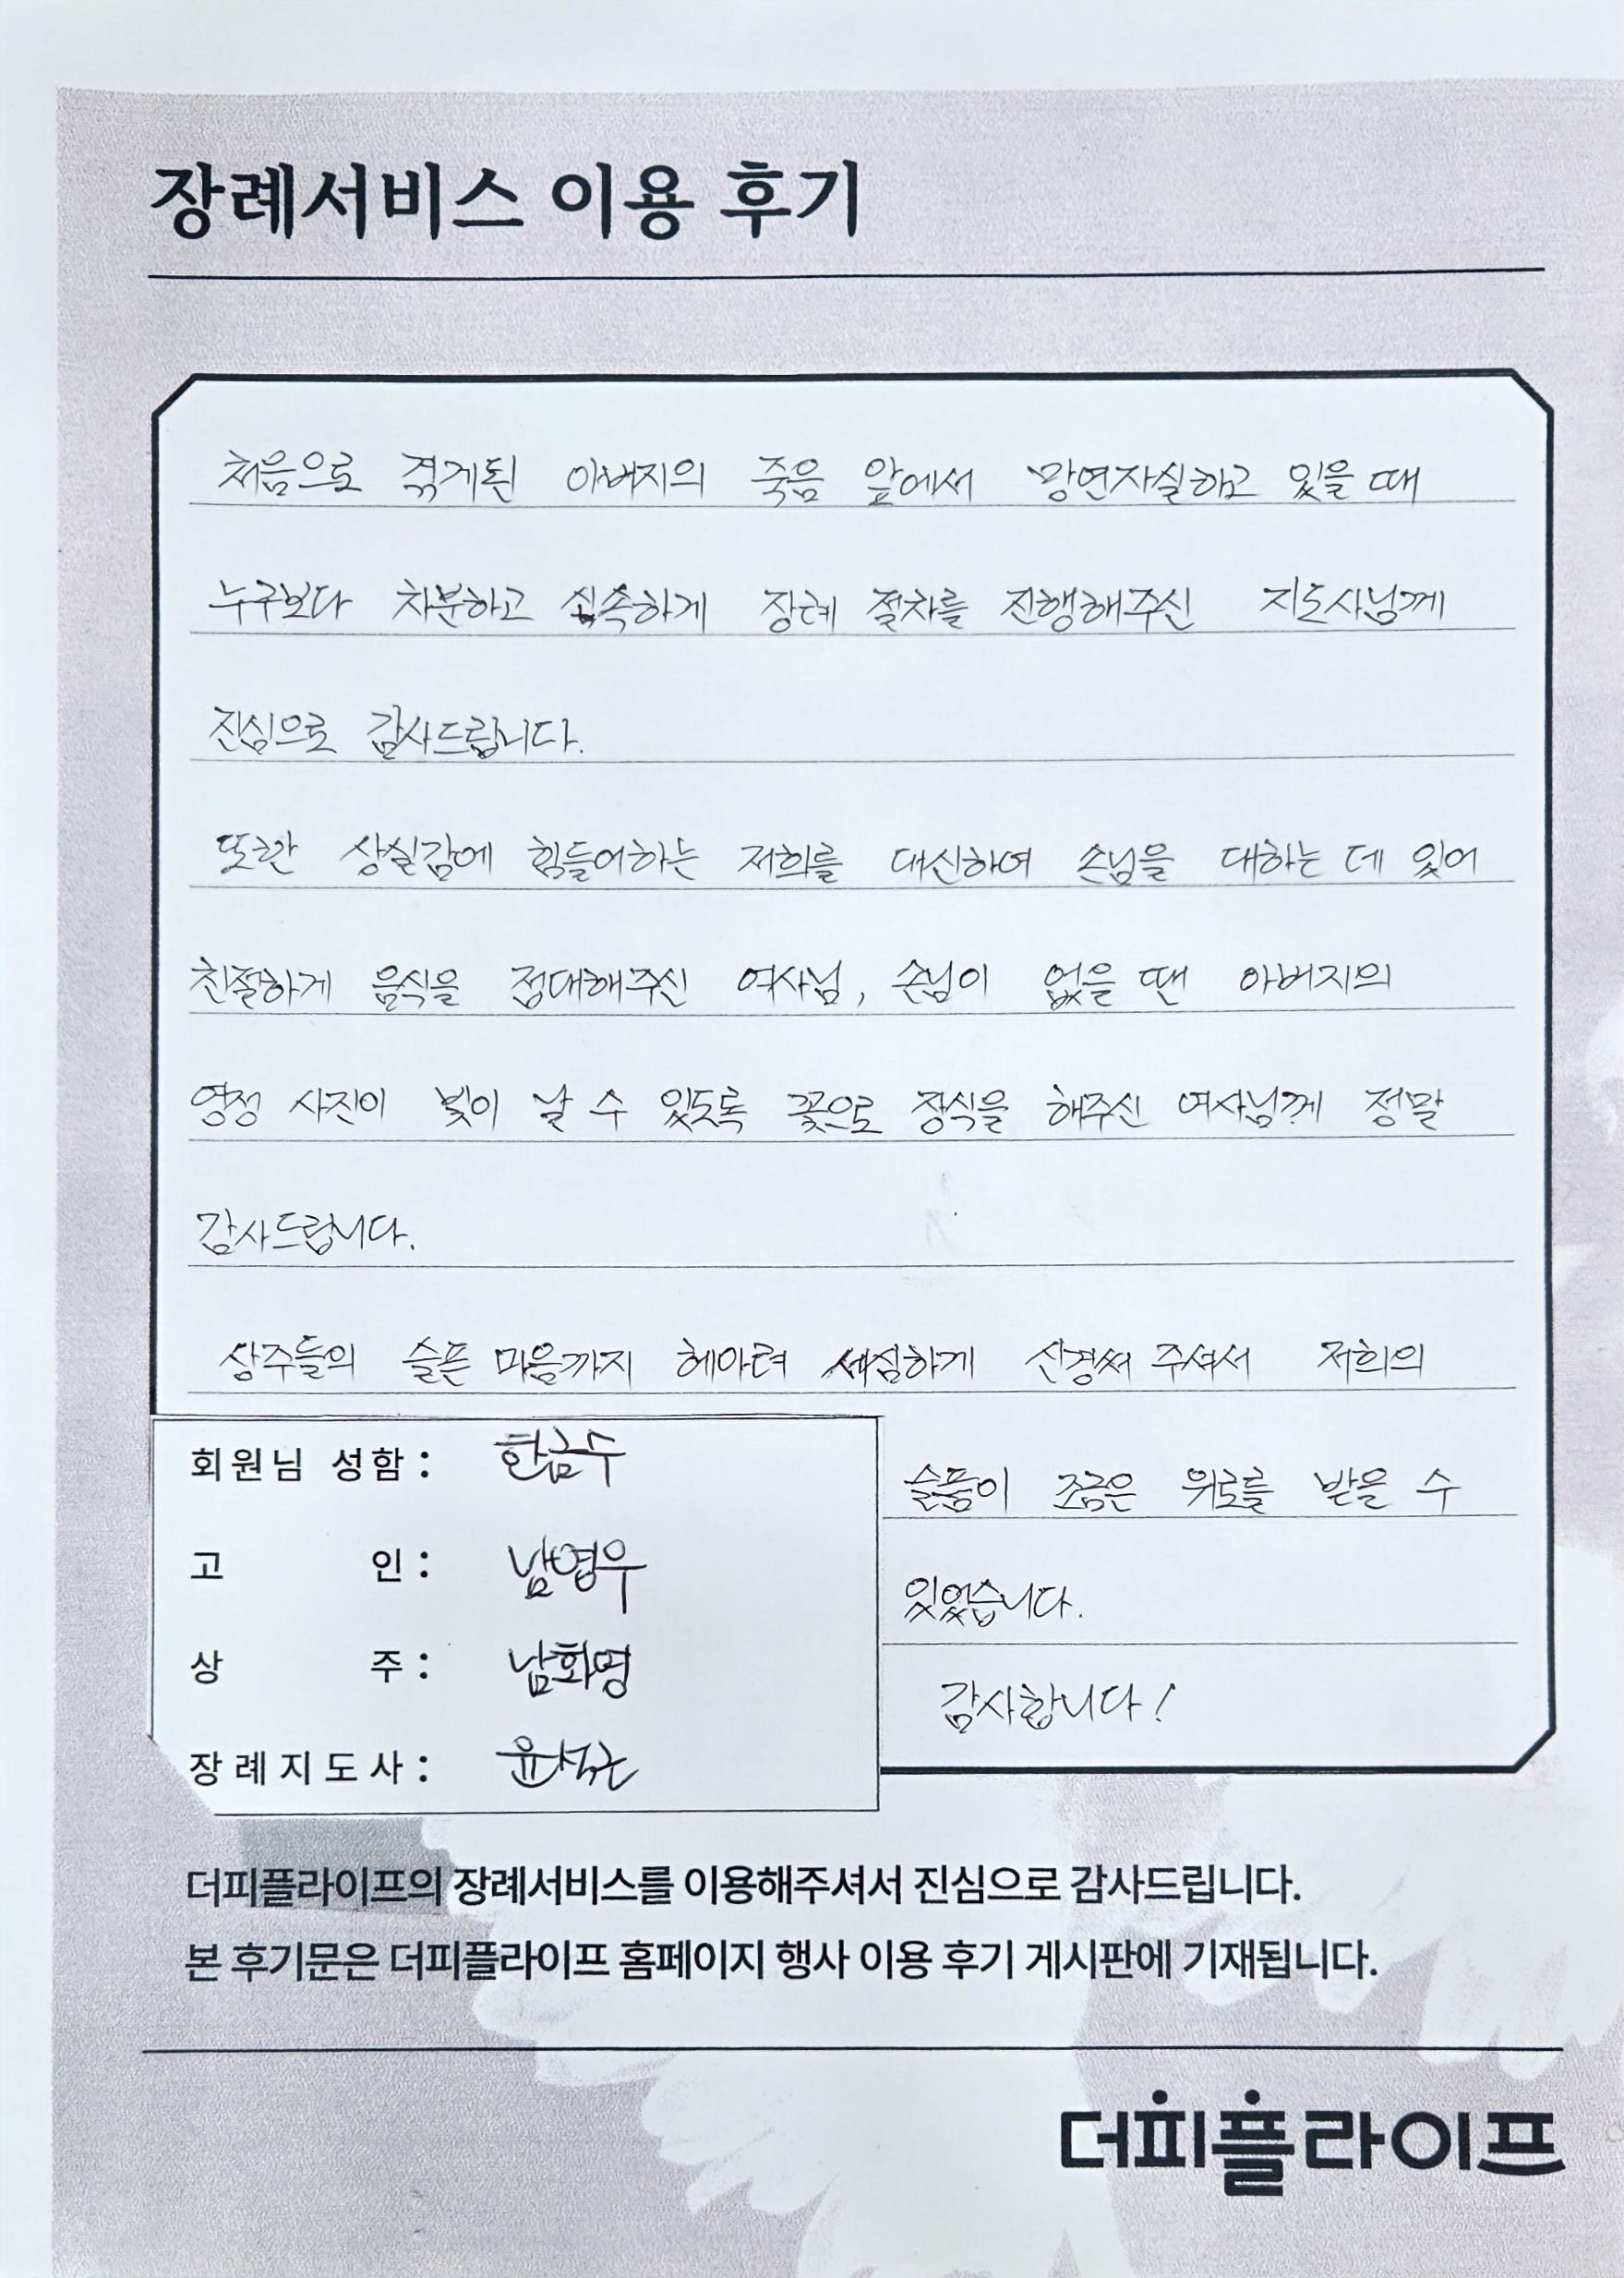 장례서비스 이용 후기
처음으로 겪게된 아버지의 죽음 앞에서 망연자실하고 있을 때
누구보다 차분하고 신속하게 장례 절차를 진행해주신 지도사님께
진심으로 감사드립니다.
또한 상실감에 힘들어하는 저희를 대신하여 손님을 대하는 데 있어
친절하게 음식을 접대해주신 여사님, 손님이 없을 땐 아버지의
영정 사진이 빛이 날 수 있도록 꽃으로 장식을 해주신 여사님께 정말
감사드립니다.
상주들의 슬픈 마음까지 헤아려 세심하게 신경써 주셔서 저희의
슬픔이 조금은 위로를 받을 수
있었습니다.
감사합니다!
회원님 성함 : 한금수
고 인 : 남영우
상 주 : 남화영
장례지도사 : 윤석근
더피플라이프의 장례서비스를 이용해주셔서 진심으로 감사드립니다.
본 후기문은 더피플라이프 홈페이지 행사 이용 후기 게시판에 기재됩니다.
더피플라이프